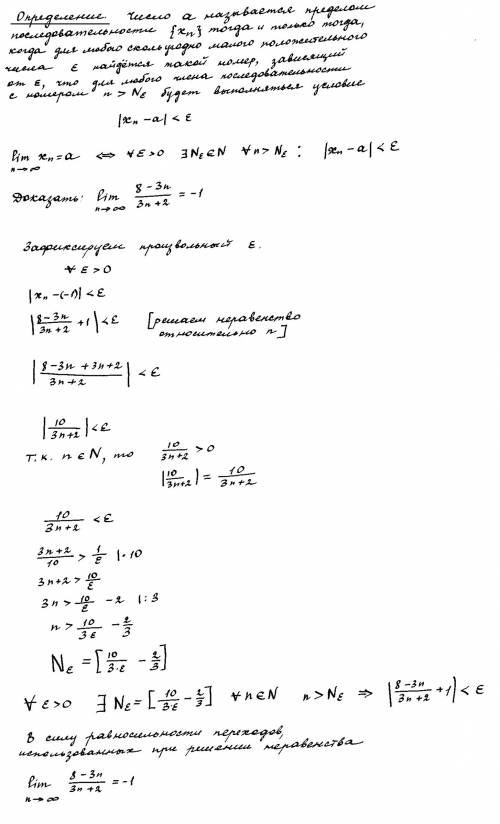 Определение. Число a называется пределом
последовательности {xₙ} тогда и только тогда,
когда для любого сколь угодно малого положительного
числа ε найдётся такой номер, зависящий
от ε, что для любого члена последовательности
с номером n > Nε будет выполняться условие
|xₙ - a| < ε
lim xₙ = a ⇔ ∀ε>0 ∃Nε∈N ∀n>Nε : |xₙ - a| < ε
n→∞
Доказать: lim (8-3n)/(3n+2) = -1
n→∞
Зафиксируем произвольный ε.
∀ε>0
|xₙ - (-1)| < ε
|(8-3n)/(3n+2) + 1| < ε [решаем неравенство
относительно n]
|(8-3n+3n+2)/(3n+2)| < ε
|10/(3n+2)| < ε
т.к. n∈N, то 10/(3n+2) > 0
|10/(3n+2)| = 10/(3n+2)
10/(3n+2) < ε
(3n+2)/10 > 1/ε |·10
3n+2 > 10/ε
3n > 10/ε - 2 |:3
n > 10/(3ε) - 2/3
Nε = [10/(3·ε) - 2/3]
∀ε>0 ∃Nε = [10/(3·ε) - 2/3] ∀n∈N n>Nε ⇒ |(8-3n)/(3n+2) + 1| < ε
В силу равносильности переходов,
использованных при решении неравенства
lim (8-3n)/(3n+2) = -1
n→∞